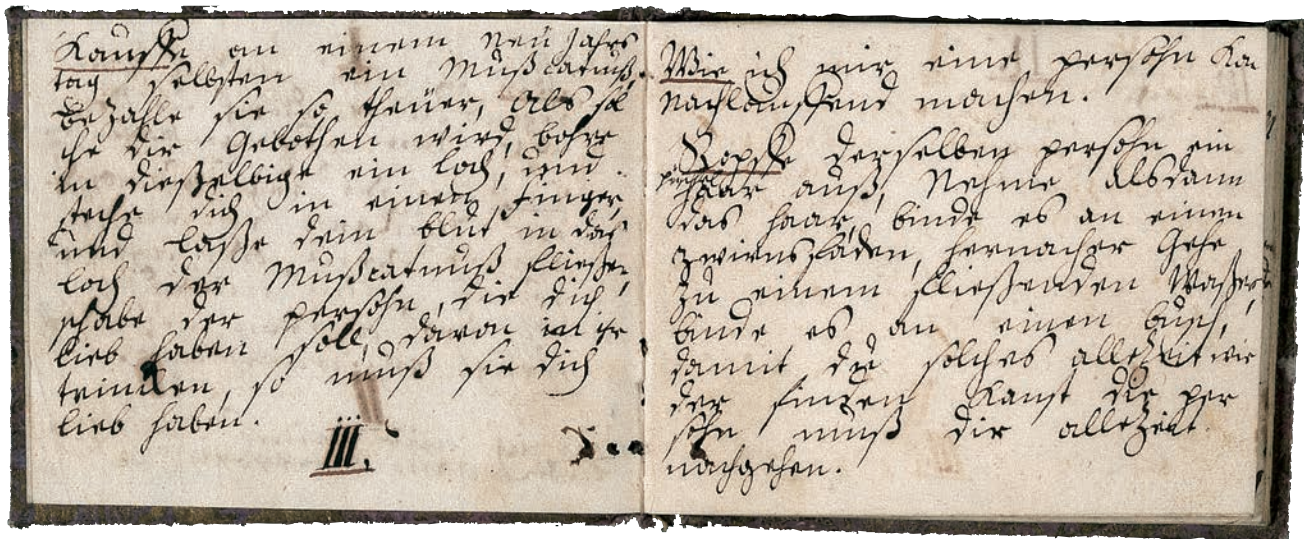 Kauffe an einem neü Jahrs
tag selbsten ein Mußcatnuß,
bezahle sie so theüer, als sol
che dir gebothen wird, bohre
in dießelbige ein loch, und
steche dich in einen finger,
und laße dein blut in das
loch der Mußcatnuß fließen,
schabe der persohn, die dich
lieb haben soll, davon in ihr
trincken, so muß sie dich
lieb haben.
iii.
Wie ich mir eine persohn kan
nachlauffend machen.
Ropffe derselben persohn ein
haar auß, Nehme alsdann
das haar, binde es an einen
zwirnsfaden, hernacher gehe
zu einem fließenden Waßer,
binde es an einen busch,
damit du solches allezeit wie
der finden kanst die per
sohn muß dir allezeit
nachgehen.